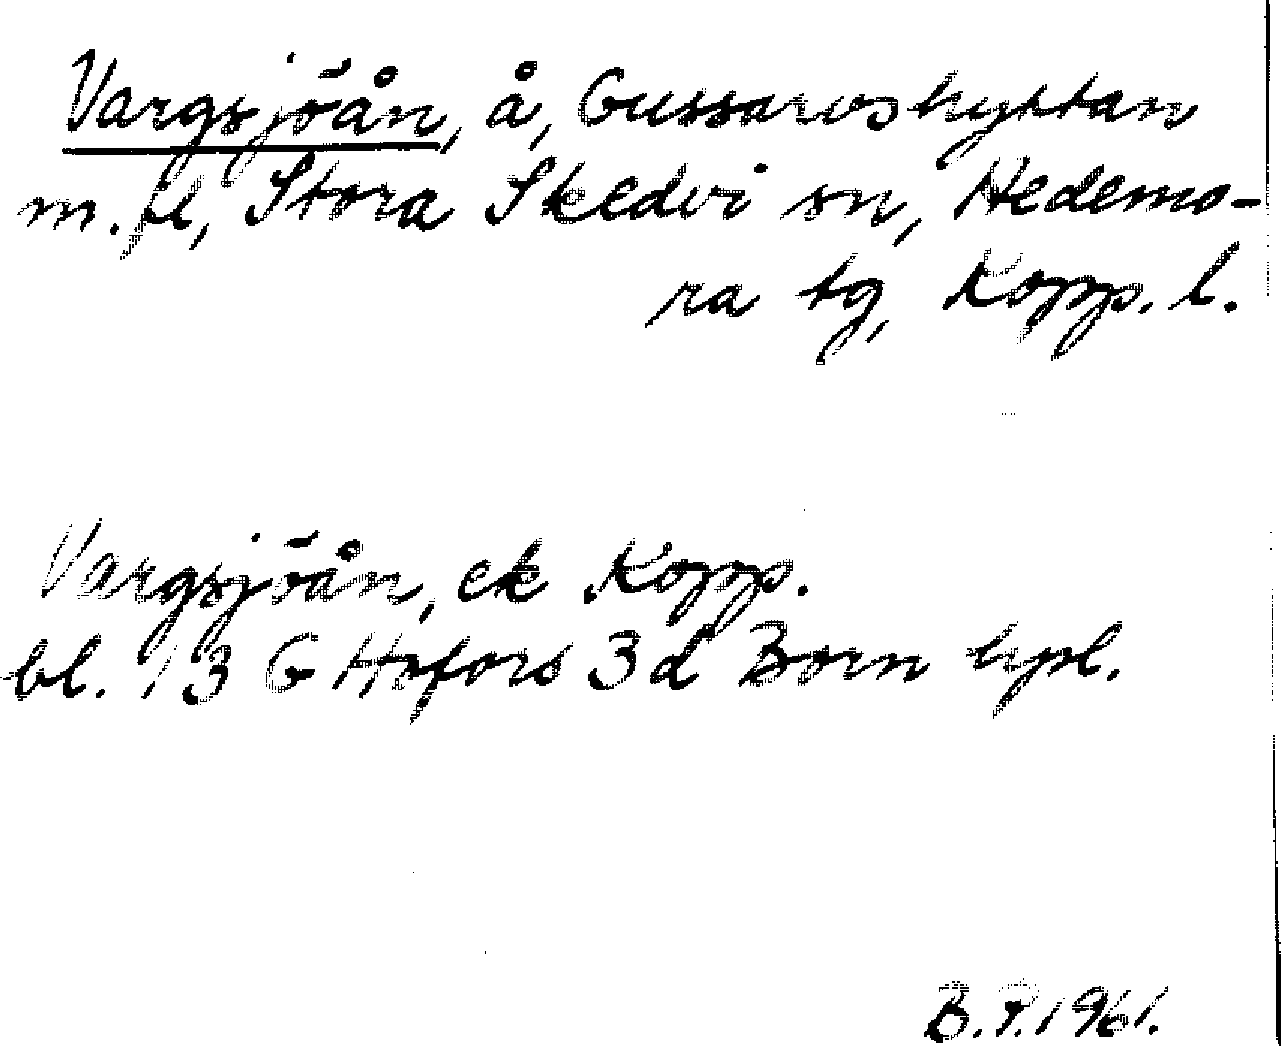 Vargsjöån, å, Gussarvshyttan
m. fl, Stora Skedvi sn, Hedemo-
ra tg, Kopp. l.
Vargsjöån, ek Kopp.
bl. 13 G Hofors 3 d Born hpl.
B.P. 1961.